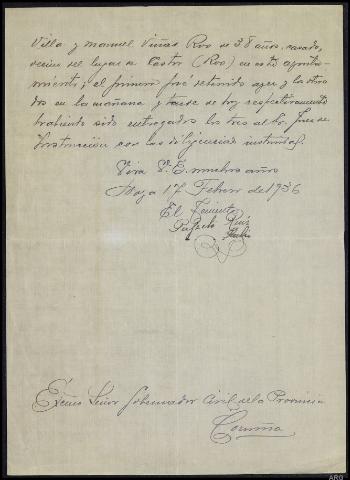 Villa y manuel Viñas Roo de 38 años, casado,
vecino del lugar de Castro (Roo) en este
el primero fué detenido ayer y los otros
dos en la mañana y tarde de hoy respectivamente
habiendo sido entregados los tres al Sr. Juez de
Instrucción con las diligencias instruidas.
Viva V.E. muchos años
17 Febrero de 1936
El Teniente
Ruiz
Excmo Señor Gobernador Civil de la Provincia
Coruña
ARG